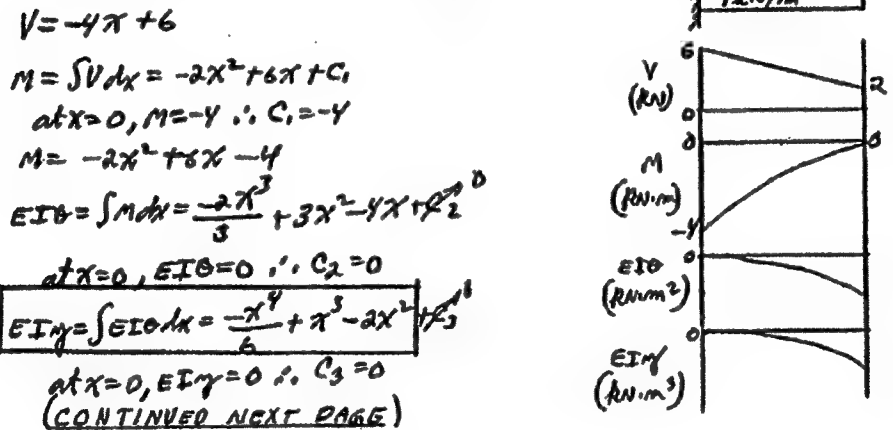 V = -4x + 6
M = ∫Vdx = -2x² + 6x + C₁
at x=0, M=-4 ∴ C₁=-4
M = -2x² + 6x - 4
EIθ = ∫Mdx = -2x³/3 + 3x² - 4x + C₂ 0
at x=0, EIθ=0 ∴ C₂=0
EIy = ∫EIθdx = -x⁴/6 + x³ - 2x² + C₃ 0
at x=0, EIy=0 ∴ C₃=0
(CONTINUED NEXT PAGE)
6
V
(kN)
2
0
0
0
M
(kN·m)
-4
0
EIθ
(kN·m²)
0
EIy
(kN·m³)